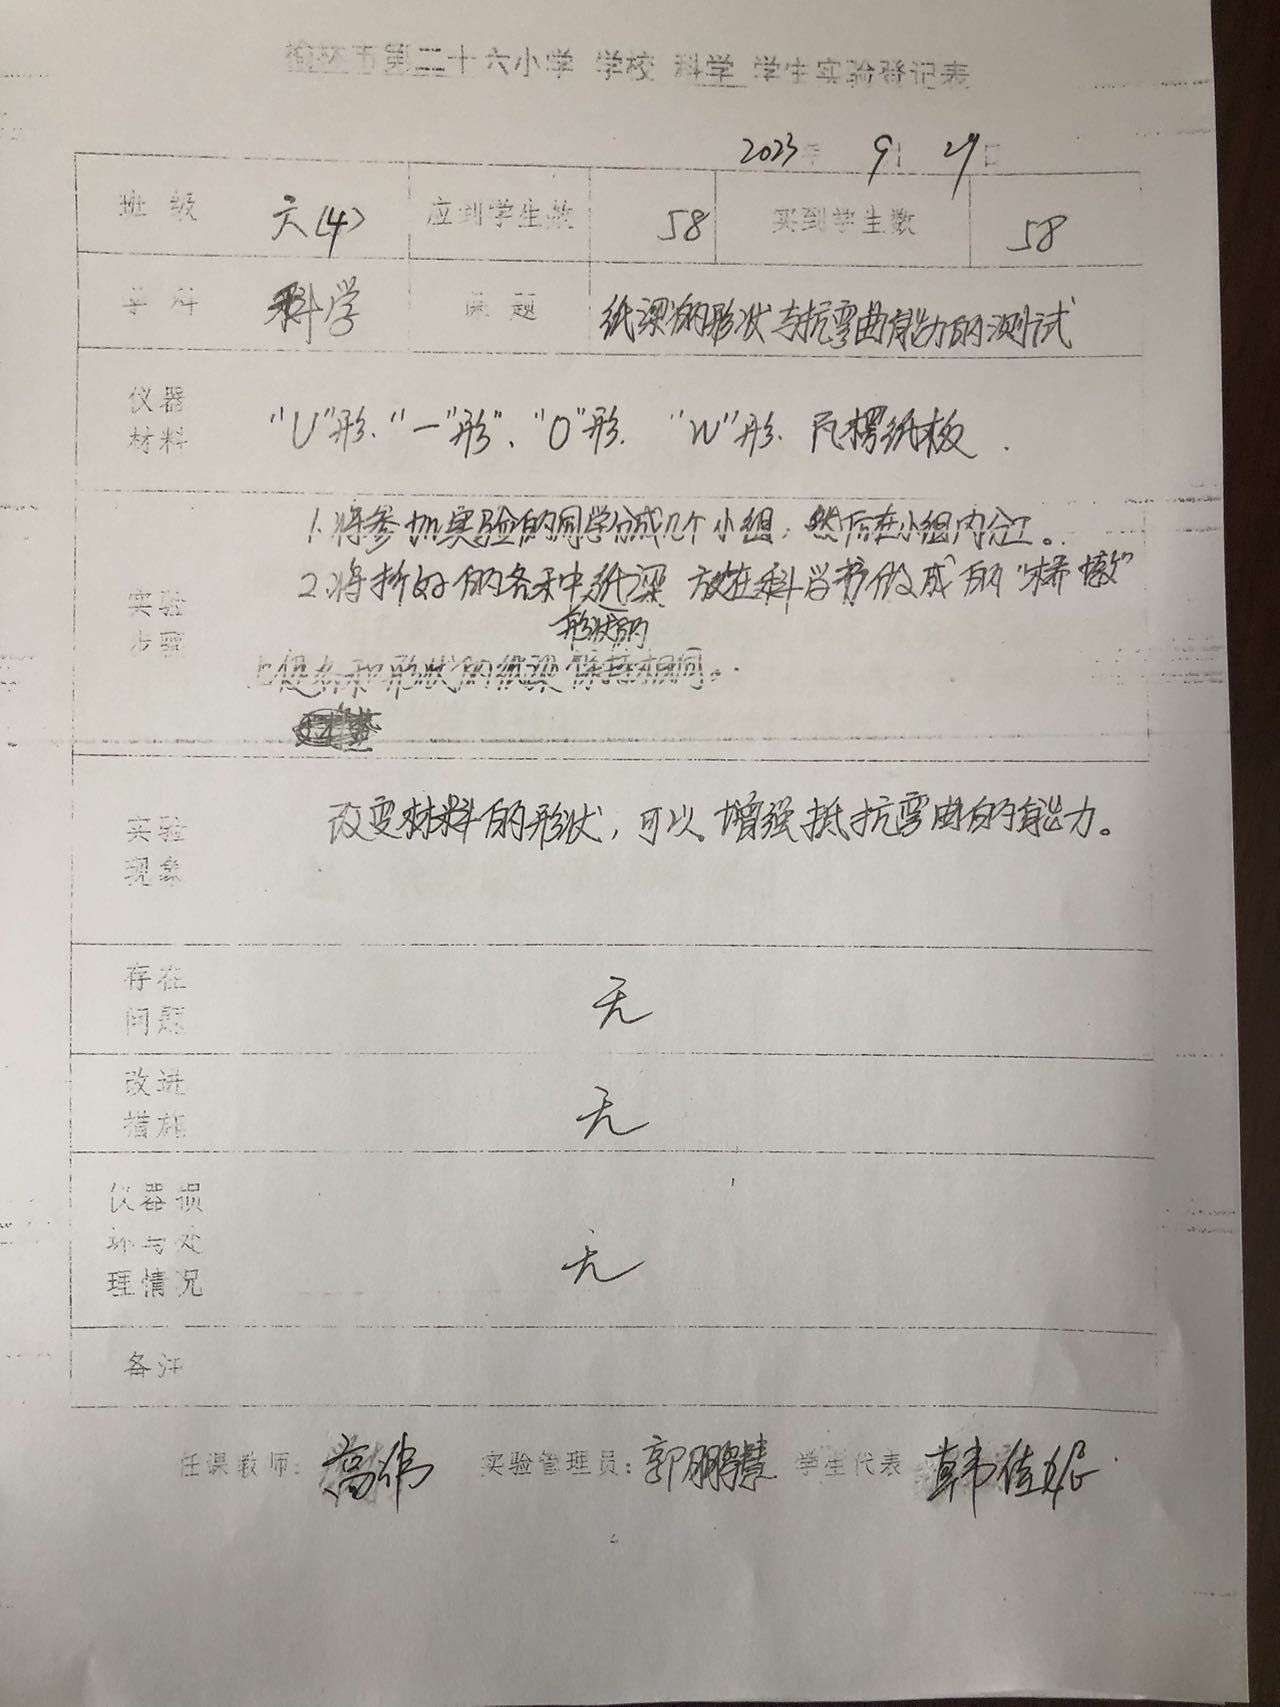 榆林市第二十六小学 学校 科学 学生实验登记表
2023年 9月 27日
班级 六(4) 应到学生数 58 实到学生数 58
学科 科学 课题 纸梁的形状与抗弯曲能力的测试
仪器
材料
"U"形、"一"形"、"O"形、"W"形、瓦楞纸板.
实验
步骤
1.将参加实验的同学分成几个小组,然后在小组内分工。
2.将折好的各种纸梁 放在科学书做成的"桥墩"
形状的
上使各种形状的纸梁保持相同。
实验
现象
改变材料的形状,可以增强抵抗弯曲的能力。
存在
问题
无
改进
措施
无
仪器损
坏与处
理情况
无
备注
任课教师: 高伟 实验管理员: 郭鹏慧 学生代表 韩佳妮